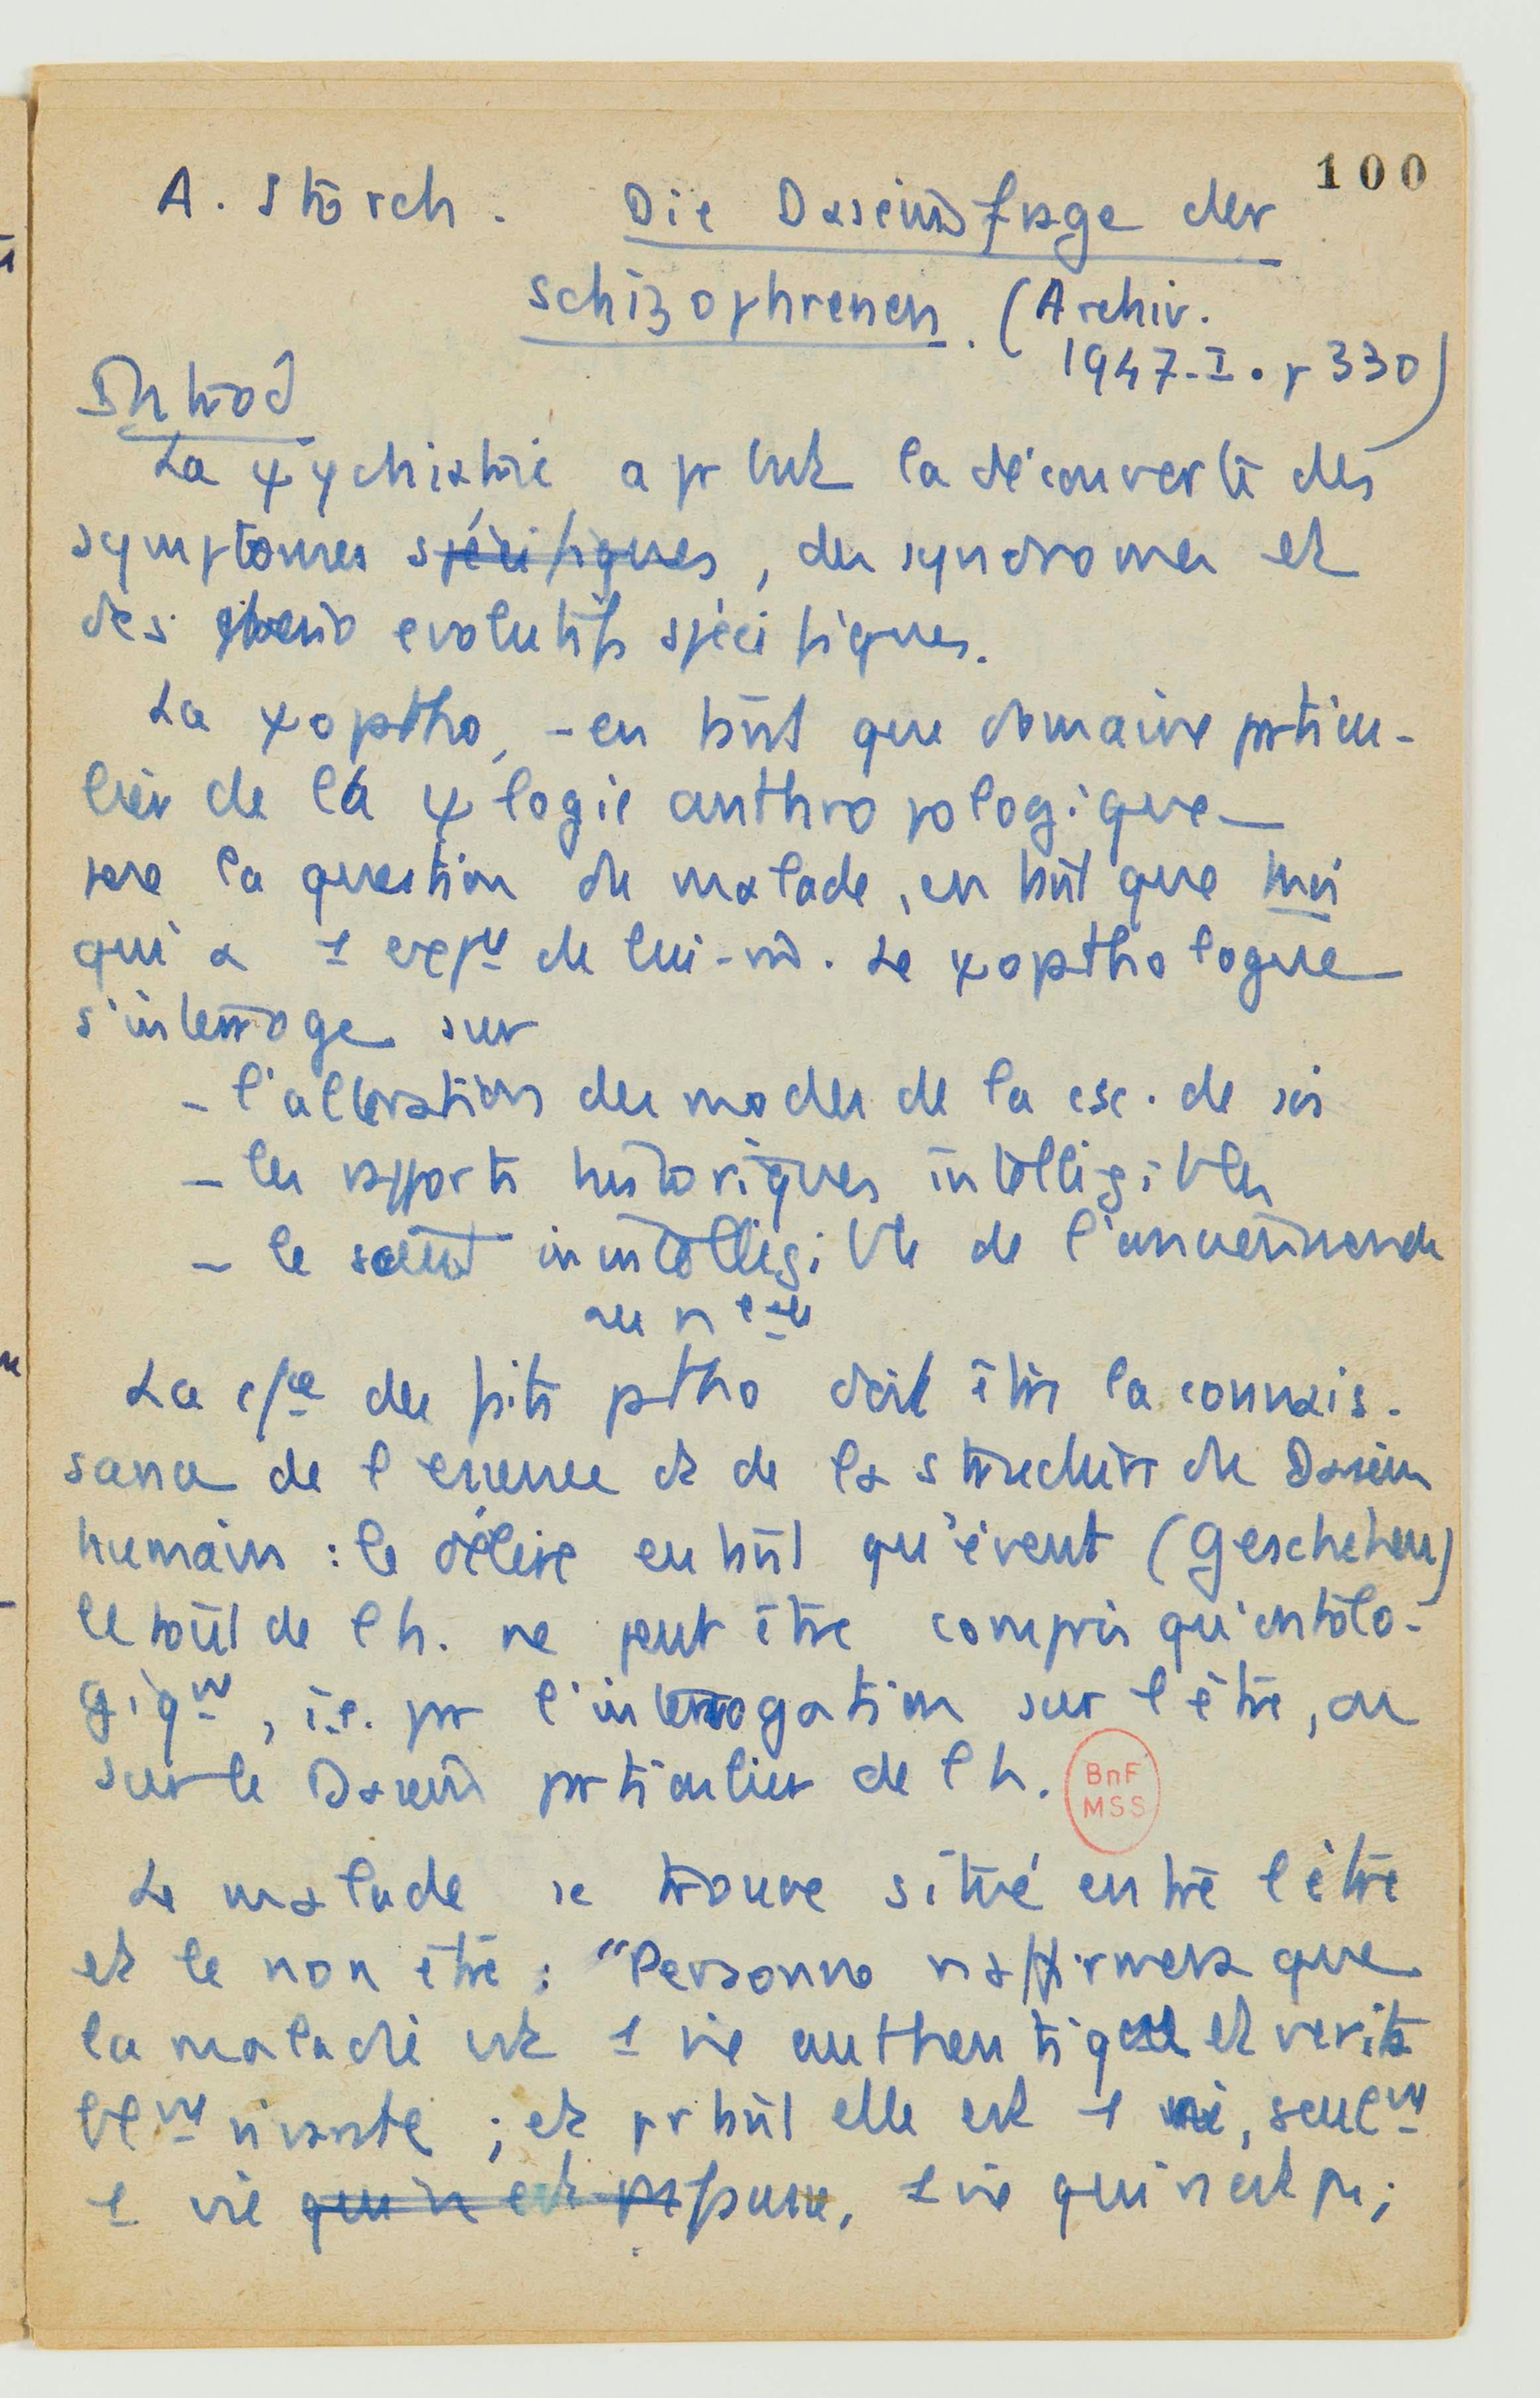 100
A. Storch. Die Daseinsfrage der
Schizophrenen. (Archiv.
1947-I. p 330)
Introd
La ψychiatrie a pr but la découverte des
symptomes spécifiques, des syndromes et
des evolutifs spécifiques.
La ψopatho, - en tant que domaine particu-
lier de la ψlogie anthropologique -
pose la question du malade, en tant que moi
qui a 1 expce de lui-m. Le ψopathologue
s'interroge sur
- l'altération des modes de la csc. de soi
- les rapports historiques intelligibles
- le inintelligible de l'
au
La des faits patho doit être la connais-
sance de l'essence et de la structure du Dasein
humain : le délire en tant qu'évent (Geschehen)
de l'h. ne peut être compris qu'ontolo-
giqmt, i.e. par l'interrogation sur l'être, ou
sur le Dasein particulier de l'h.
BnF
MSS
Le malade se trouve situé entre l'être
et le non être : "Personne n'affirmera que
la maladie est 1 vie authentique et vérita
blmt vivante ; et pr tant elle est 1 vie, seulmt
1 vie qui n'est pas fausse, 1 vie qui n'est pas ;